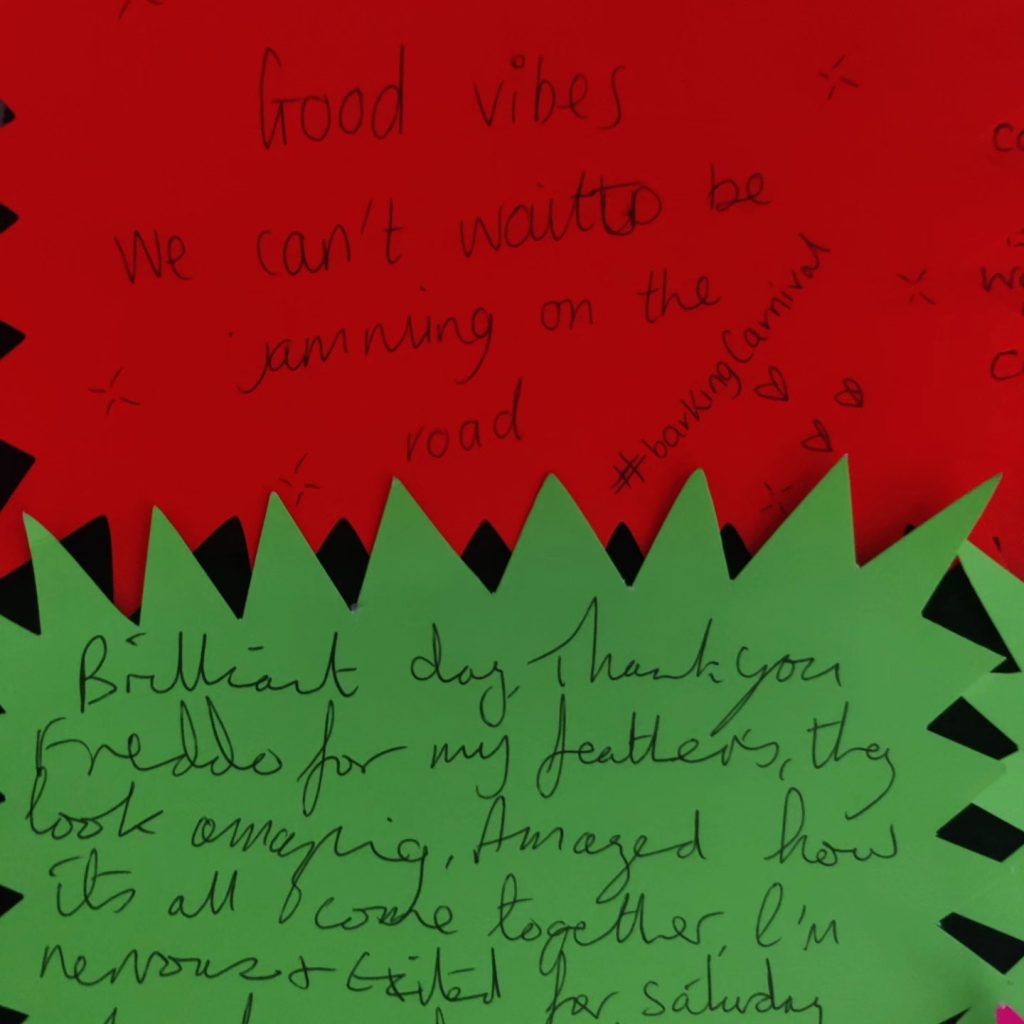 Good vibes
We can't wait to be
jamming on the
road
#barkingCarnival
Brilliant day, Thank you
Freddo for my feathers, they
look amazing, Amazed how
its all come together, I'm
nervous + Exited for saturday